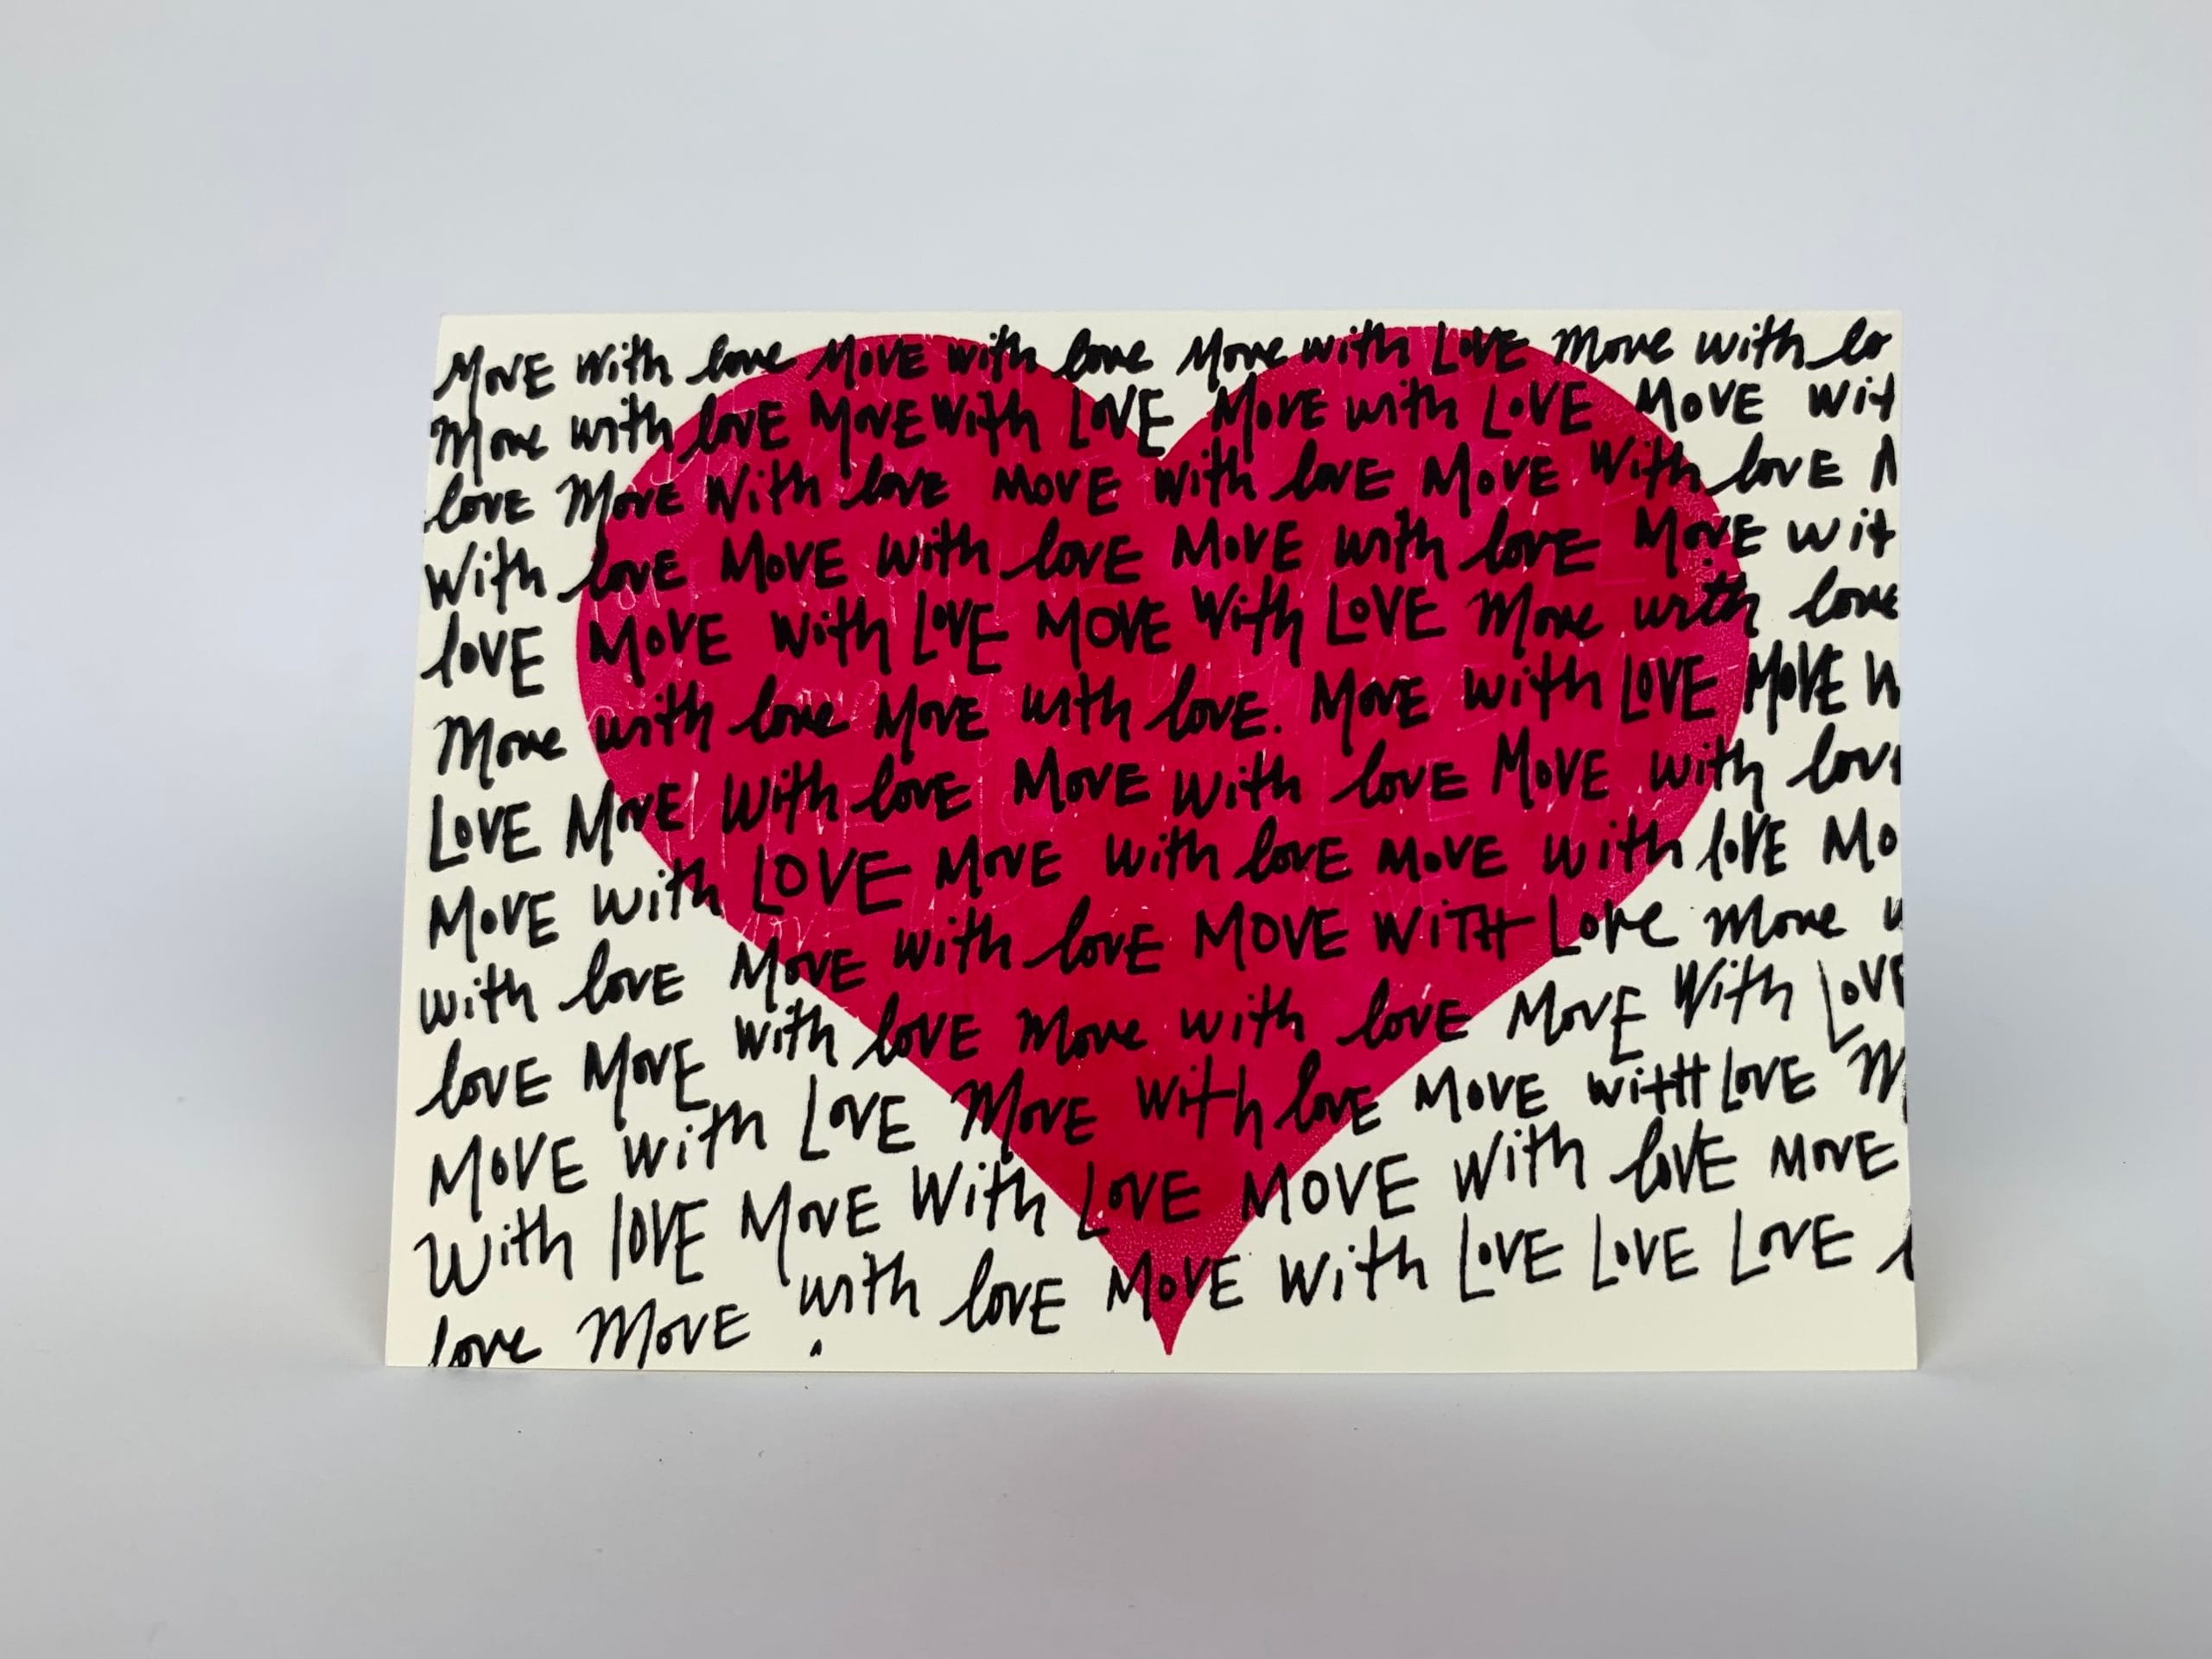 MOVE with love MOVE with love Move with LOVE Move with lo
Move with lovE MOVE With LOVE MOVE with LOVE MOVE wit
lovE MOVE With love MOVE with lovE MOVE With lovE M
With lovE MOVE with lovE MOVE with lovE MOVE wit
lOVE MOVE with LOVE MOVE With LOVE Move with love
Move with love MOVE with lovE. MOVE with LOVE MOVE w
LOVE MOVE With lovE MOVE with lovE MOVE with lov
MOVE with LOVE MOVE with lovE MOVE with lOVE MO
with lovE MOVE with lovE MOVE WiTH Love Move w
lovE MOVE with lovE Move with lovE MOVE With LOVE
MOVE with LOVE MOVE With lovE MOVE witH LOVE M
With lOVE MOVE With LOVE MOVE With lovE MOVE
love MOVE with lovE MOVE With LOVE LOVE LOVE